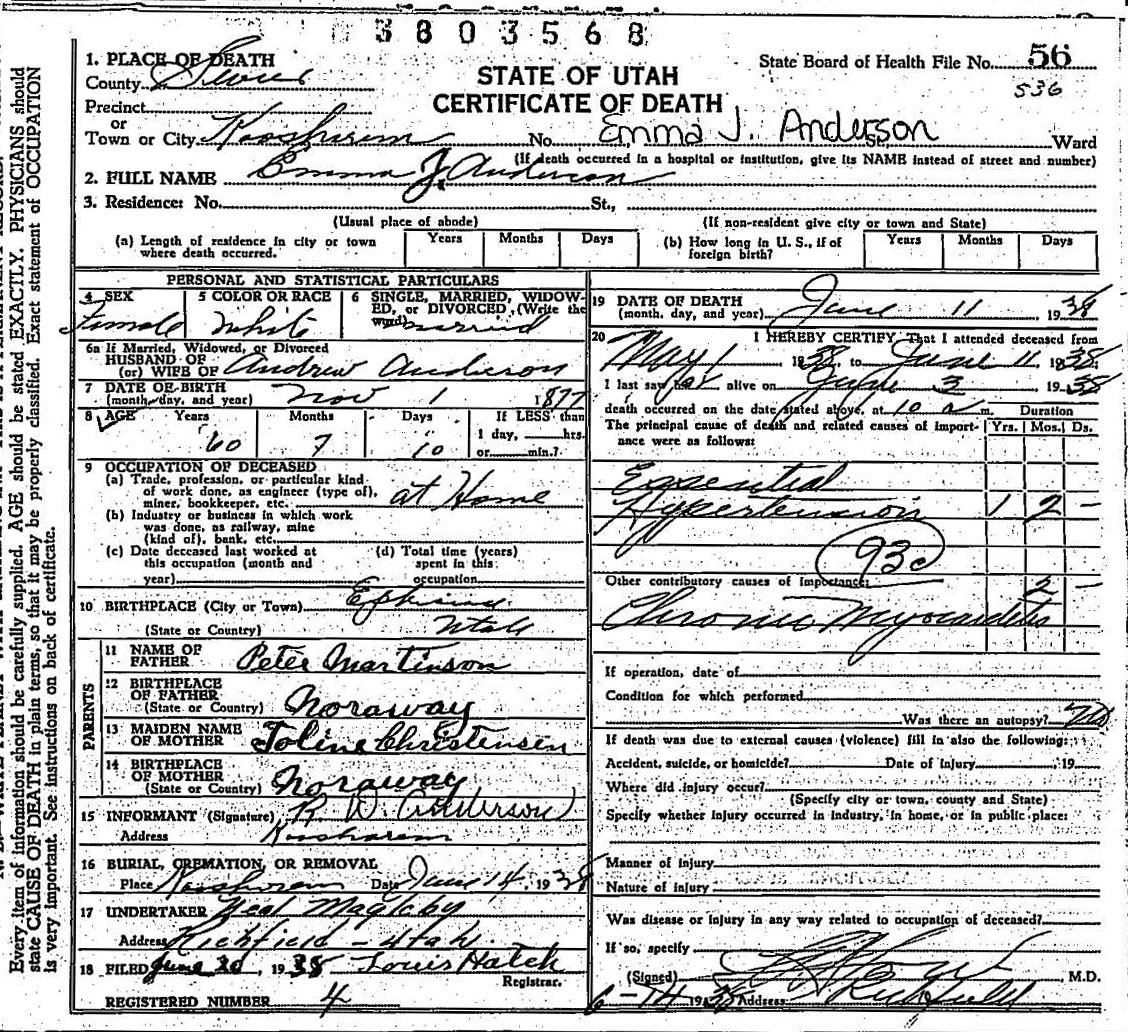 3803568
State Board of Health File No. 56
536
STATE OF UTAH
CERTIFICATE OF DEATH
1. PLACE OF DEATH
County Sevier
Precinct
or
Town or City Koosharem No. Emma J. Anderson St., Ward
(If death occurred in a hospital or institution, give its NAME instead of street and number)
2. FULL NAME Emma J. Anderson
3. Residence: No. St.,
(Usual place of abode) (If non-resident give city or town and State)
(a) Length of residence in city or town where death occurred. Years Months Days
(b) How long in U. S., if of foreign birth? Years Months Days
PERSONAL AND STATISTICAL PARTICULARS
4 SEX Female
5 COLOR OR RACE White
6 SINGLE, MARRIED, WIDOWED, OR DIVORCED, (Write the word) married
6a If Married, Widowed, or Divorced
HUSBAND OF
(or) WIFE OF Andrew Anderson
7 DATE OF BIRTH
(month, day, and year) Nov 1 1877
8 AGE Years Months Days If LESS than
60 7 10 1 day, hrs.
or min.?
9 OCCUPATION OF DECEASED
(a) Trade, profession, or particular kind
of work done, as engineer (type of),
miner, bookkeeper, etc. at Home
(b) Industry or business in which work
was done, as railway, mine
(kind of), bank, etc.
(c) Date deceased last worked at
this occupation (month and
year)
(d) Total time (years)
spent in this
occupation
10 BIRTHPLACE (City or Town) Ephraim
(State or Country) Utah
PARENTS
11 NAME OF
FATHER Peter Martinson
12 BIRTHPLACE
OF FATHER
(State or Country) Noraway
13 MAIDEN NAME
OF MOTHER Toline Christensen
14 BIRTHPLACE
OF MOTHER
(State or Country) Noraway
15 INFORMANT (Signature) R. W. Anderson
Address Koosharem
16 BURIAL, CREMATION, OR REMOVAL
Place Koosharem Date June 14, 1938
17 UNDERTAKER Neal Magleby
Address Richfield - Utah.
18 FILED June 20, 1938 Louis Hatch
Registrar.
REGISTERED NUMBER 4
19 DATE OF DEATH
(month, day, and year) June 11 1938
20 I HEREBY CERTIFY, That I attended deceased from
May 1 1938, to June 11 1938
I last saw her alive on June 3 1938
death occurred on the date stated above, at 10 a m. Duration
The principal cause of death and related causes of importance were as follows: Yrs. Mos. Ds.
Essential
Hypertension 1 2 -
93c
Other contributory causes of importance: 2 -
Chronic Myocarditis
If operation, date of
Condition for which performed
Was there an autopsy? No
If death was due to external causes (violence) fill in also the following:
Accident, suicide, or homicide? Date of injury 19
Where did injury occur?
(Specify city or town, county and State)
Specify whether injury occurred in industry, in home, or in public place:
Manner of injury
Nature of injury
Was disease or injury in any way related to occupation of deceased?
If so, specify
(Signed) M.D.
6-14 1938 Address Richfield
Every item of information should be carefully supplied. AGE should be stated EXACTLY. PHYSICIANS should
state CAUSE OF DEATH in plain terms, so that it may be properly classified. Exact statement of OCCUPATION
is very important. See instructions on back of certificate.